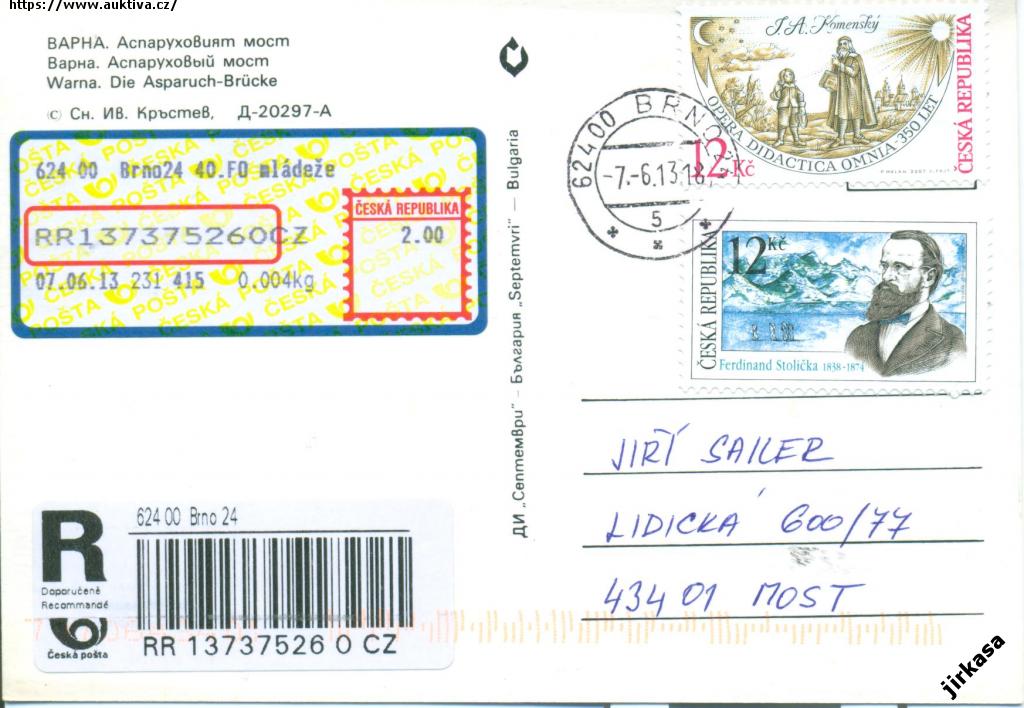 https://www.auktiva.cz/
ВАРНА. Аспаруховият мост
Варна. Аспаруховый мост
Warna. Die Asparuch-Brücke
© Сн. Ив. Кръстев, Д-20297-А
624 00 Brno24 40.FO mládeže
RR137375260CZ
07.06.13 231 415 0.004kg
ČESKÁ REPUBLIKA
2.00
ČESKÁ POŠTA
R
Doporučené
Recommandé
Česká pošta
624 00 Brno 24
RR 13737526 0 CZ
ДИ „Септември" – България „Septemvri" – Bulgaria
624 00 BRNO
-7.-6.13 18
5
J. A. Komenský
OPERA DIDACTICA OMNIA 350 LET
12 Kč
ČESKÁ REPUBLIKA
12 Kč
ČESKÁ REPUBLIKA
Ferdinand Stolička 1838-1874
JIŘÍ SAILER
LIDICKÁ 600/77
434 01 MOST
jirkasa